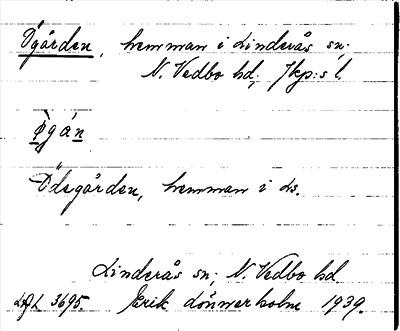 Ögården, hemman i Linderås sn;
N. Vedbo hd; Jkp:s l.
ø̀gán
Ödegården, hemman i Ls.
Linderås sn; N. Vedbo hd
LAL 3695 Erik Lönnerholm 1939.